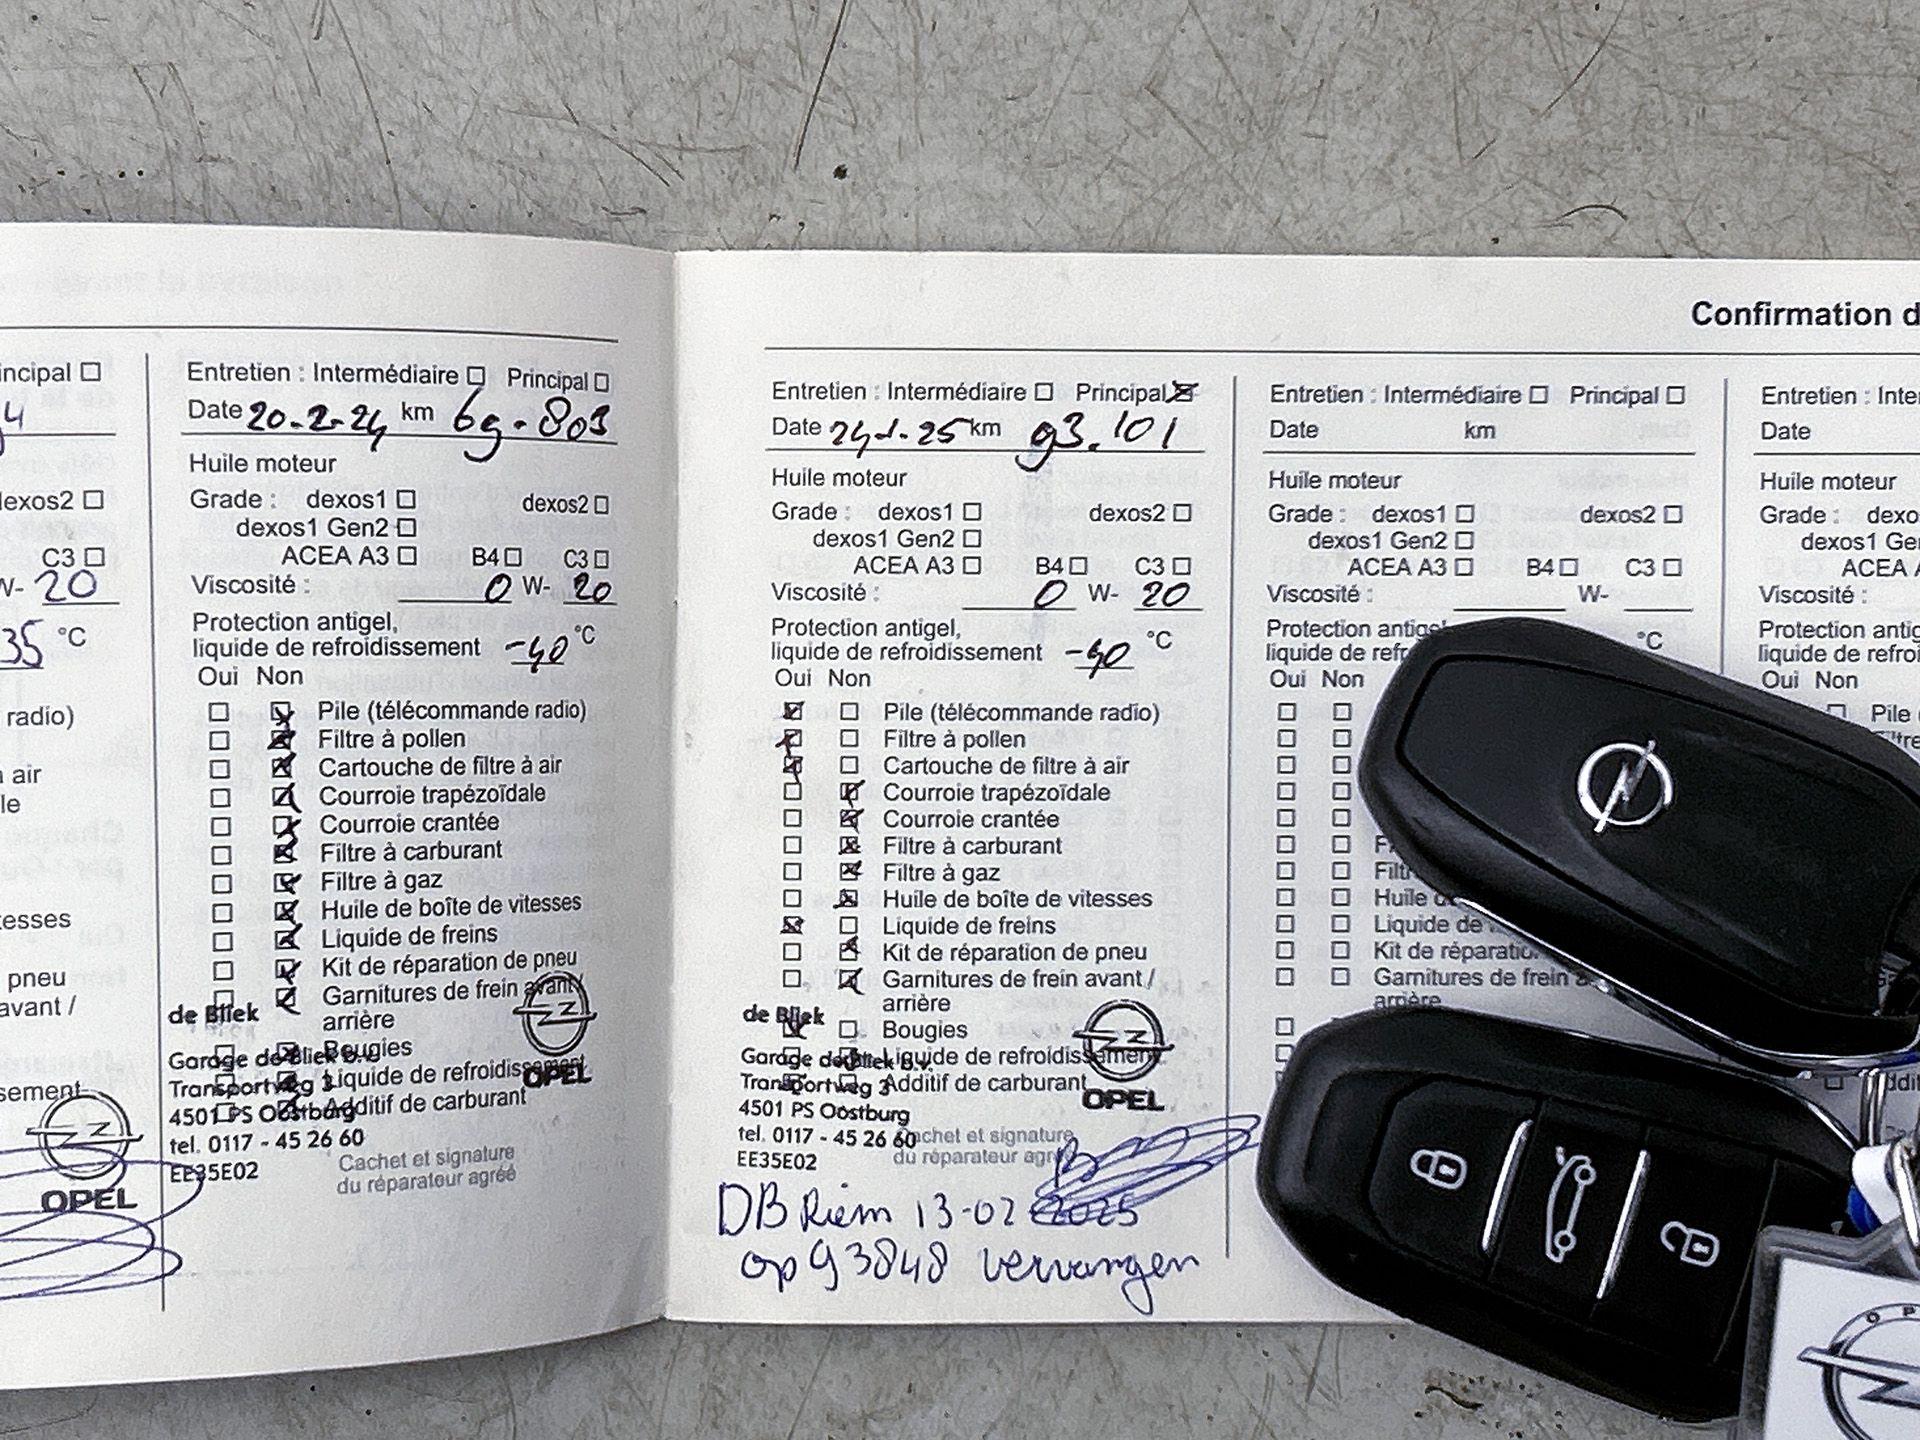 Confirmation d
ncipal
4
exos2
C3
W- 20
35 °C
radio)
air
le
esses
pneu
avant /
ssement
OPEL
Entretien : Intermédiaire Principal
Date 20-2-24 km 69.803
Huile moteur
Grade : dexos1 dexos2
dexos1 Gen2
ACEA A3 B4 C3
Viscosité : 0 W- 20
Protection antigel,
liquide de refroidissement -40 °C
Oui Non
Pile (télécommande radio)
Filtre à pollen
Cartouche de filtre à air
Courroie trapézoïdale
Courroie crantée
Filtre à carburant
Filtre à gaz
Huile de boîte de vitesses
Liquide de freins
Kit de réparation de pneu
Garnitures de frein avant /
arrière
Bougies
Liquide de refroidissement
Additif de carburant
de Bliek
Garage de Bliek b.v.
Transportweg 3
4501 PS Oostburg
tel. 0117 - 45 26 60
EE35E02
OPEL
Cachet et signature
du réparateur agréé
Entretien : Intermédiaire Principal
Date 24-1-25 km 93.101
Huile moteur
Grade : dexos1 dexos2
dexos1 Gen2
ACEA A3 B4 C3
Viscosité : 0 W- 20
Protection antigel,
liquide de refroidissement -40 °C
Oui Non
Pile (télécommande radio)
Filtre à pollen
Cartouche de filtre à air
Courroie trapézoïdale
Courroie crantée
Filtre à carburant
Filtre à gaz
Huile de boîte de vitesses
Liquide de freins
Kit de réparation de pneu
Garnitures de frein avant /
arrière
Bougies
Liquide de refroidissement
Additif de carburant
de Bliek
Garage de Bliek b.v.
Transportweg 3
4501 PS Oostburg
tel. 0117 - 45 26 60
EE35E02
OPEL
Cachet et signature
du réparateur agréé
DB Riem 13-02 2025
op 93848 vervangen
Entretien : Intermédiaire Principal
Date km
Huile moteur
Grade : dexos1 dexos2
dexos1 Gen2
ACEA A3 B4 C3
Viscosité : W-
Protection antigel
liquide de refr °C
Oui Non
Filtr
Huile de
Liquide de
Kit de réparation
Garnitures de frein a
arrière
Entretien : Inte
Date
Huile moteur
Grade : dexo
dexos1 Ge
ACEA A
Viscosité :
Protection antig
liquide de refroi
Oui Non
Pile